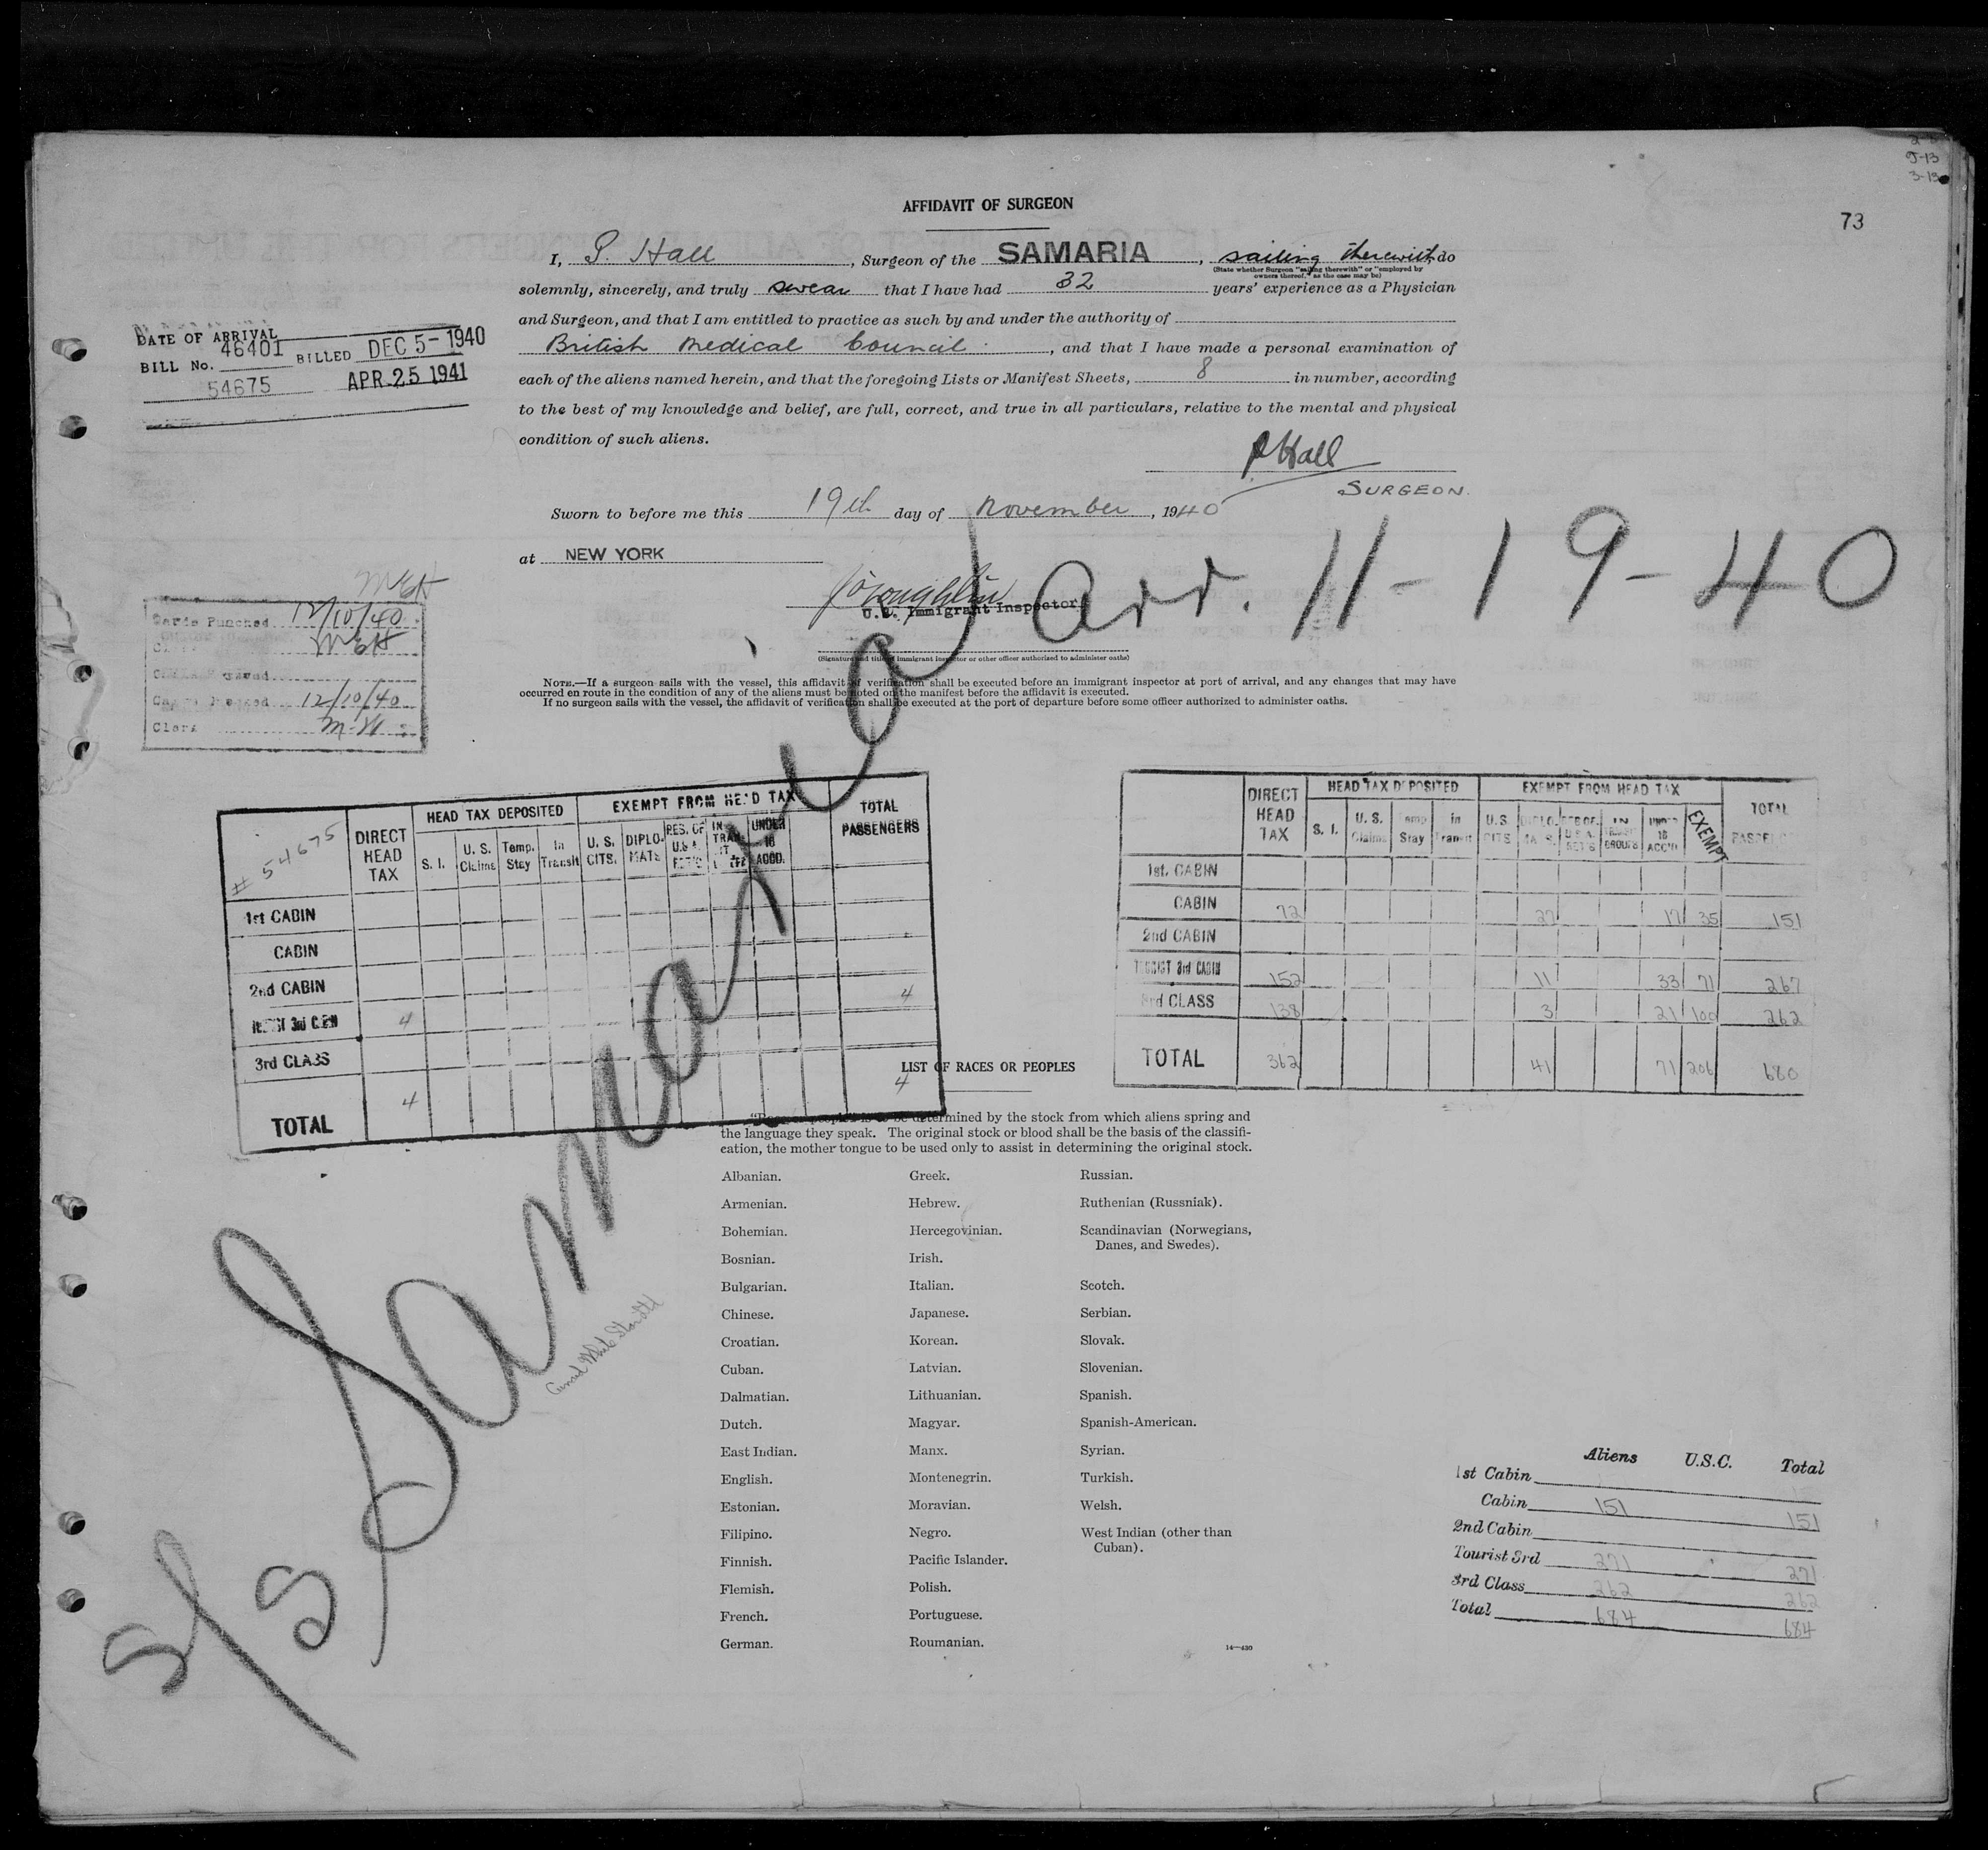 73
AFFIDAVIT OF SURGEON
I, P. Hall, Surgeon of the SAMARIA, sailing therewith, do
(State whether Surgeon "sailing therewith" or "employed by
owners thereof," as the case may be)
solemnly, sincerely, and truly swear that I have had 32 years' experience as a Physician
and Surgeon, and that I am entitled to practice as such by and under the authority of
British Medical Council, and that I have made a personal examination of
each of the aliens named herein, and that the foregoing Lists or Manifest Sheets, 8 in number, according
to the best of my knowledge and belief, are full, correct, and true in all particulars, relative to the mental and physical
condition of such aliens.
PHall
SURGEON.
Sworn to before me this 19th day of November, 1940
at NEW YORK
U.S. Immigrant Inspector
(Signature and title of immigrant inspector or other officer authorized to administer oaths)
NOTE.—If a surgeon sails with the vessel, this affidavit of verification shall be executed before an immigrant inspector at port of arrival, and any changes that may have
occurred en route in the condition of any of the aliens must be noted on the manifest before the affidavit is executed.
If no surgeon sails with the vessel, the affidavit of verification shall be executed at the port of departure before some officer authorized to administer oaths.
DATE OF ARRIVAL
BILL No. 46401 BILLED DEC 5- 1940
54675 APR 25 1941
MEH
Cards Punched 12/10/40
MEH
12/10/40
Clerk M.H.
S/S Samaria
Arr. 11-19-40
# 54675
DIRECT HEAD TAX
HEAD TAX DEPOSITED
EXEMPT FROM HEAD TAX
TOTAL PASSENGERS
S. I. U. S. Claims Temp. Stay In Transit U. S. CITS. DIPLO-MATS RES. OF U.S.A. RET'G IN TRANSIT UNDER 16 ACCD.
1st CABIN
CABIN
2nd CABIN
TOURIST 3rd CABIN 4 4
3rd CLASS
TOTAL 4 4
DIRECT HEAD TAX
HEAD TAX DEPOSITED
EXEMPT FROM HEAD TAX
TOTAL PASSENGERS
S. I. U. S. Claims Temp Stay In Transit U.S. CITS DIPLO-MATS RES OF U.S.A. RET'G IN TRANSIT GROUPS UNDER 16 ACC'D EXEMPT
1st. CABIN
CABIN 72 27 17 35 151
2nd CABIN
TOURIST 3rd CABIN 152 11 33 71 267
3rd CLASS 138 3 21 100 262
TOTAL 362 41 71 206 680
LIST OF RACES OR PEOPLES
determined by the stock from which aliens spring and
the language they speak. The original stock or blood shall be the basis of the classifi-
cation, the mother tongue to be used only to assist in determining the original stock.
Albanian.
Armenian.
Bohemian.
Bosnian.
Bulgarian.
Chinese.
Croatian.
Cuban.
Dalmatian.
Dutch.
East Indian.
English.
Estonian.
Filipino.
Finnish.
Flemish.
French.
German.
Greek.
Hebrew.
Hercegovinian.
Irish.
Italian.
Japanese.
Korean.
Latvian.
Lithuanian.
Magyar.
Manx.
Montenegrin.
Moravian.
Negro.
Pacific Islander.
Polish.
Portuguese.
Roumanian.
Russian.
Ruthenian (Russniak).
Scandinavian (Norwegians,
Danes, and Swedes).
Scotch.
Serbian.
Slovak.
Slovenian.
Spanish.
Spanish-American.
Syrian.
Turkish.
Welsh.
West Indian (other than
Cuban).
14—430
Aliens U.S.C. Total
1st Cabin
Cabin 151 151
2nd Cabin
Tourist 3rd 271 271
3rd Class 262 262
Total 684 684